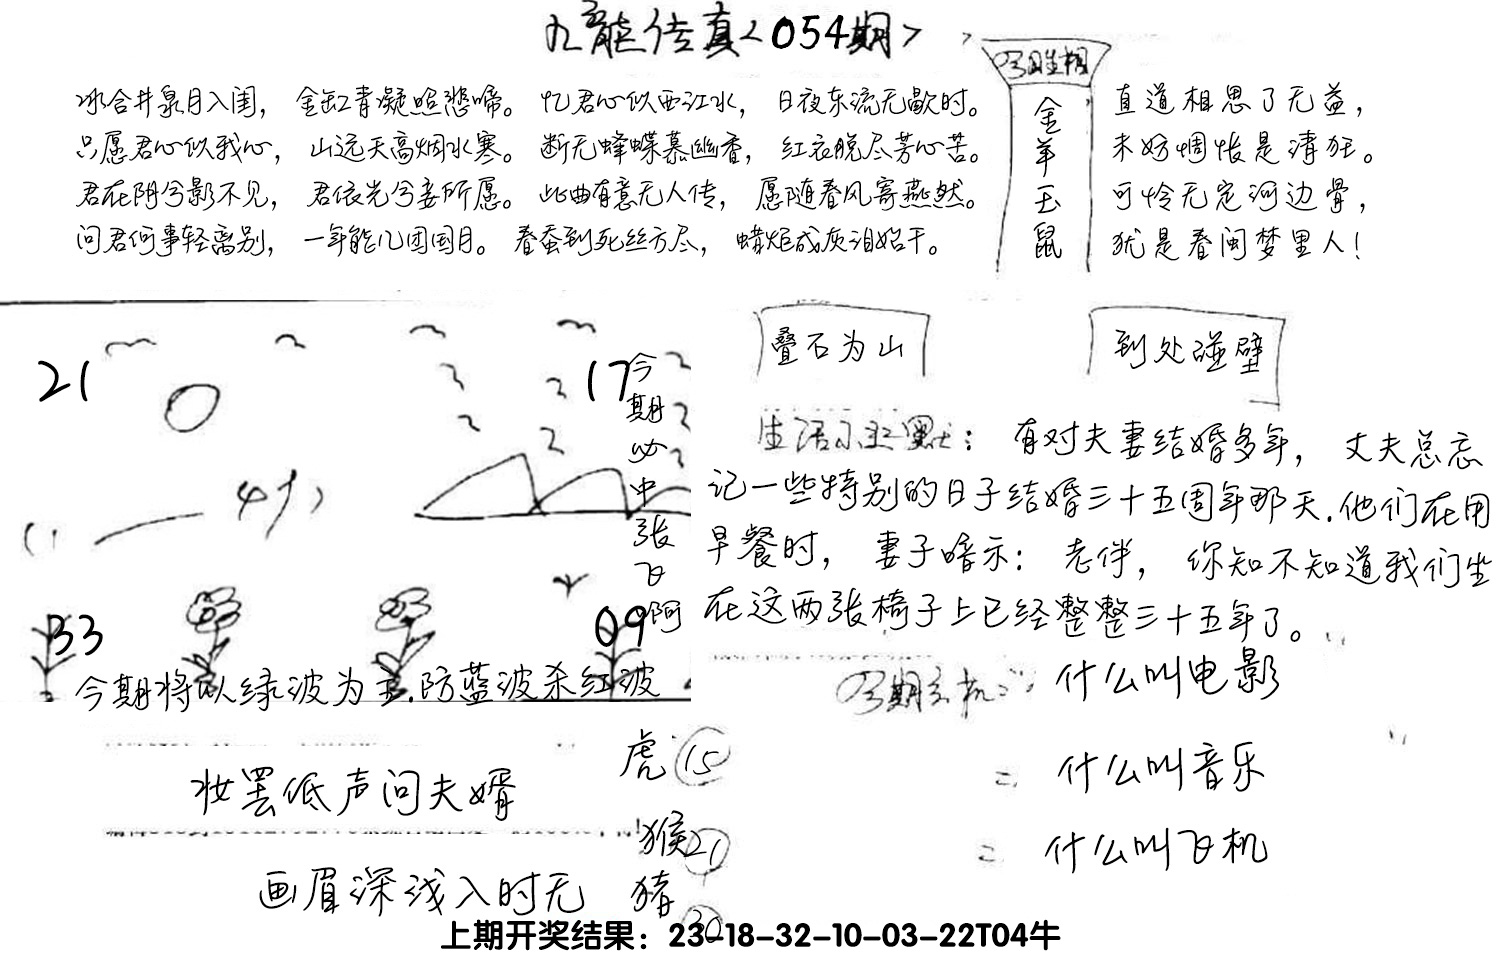 九龙传真<054期>
冰合井泉月入闺，金缸青凝照悲啼。忆君心似西江水，日夜东流无歇时。
只愿君心似我心，山远天高烟水寒。断无蜂蝶慕幽香，红衣脱尽芳心苦。
君在阴兮影不见，君依光兮妾所愿。此曲有意无人传，愿随春风寄燕然。
问君何事轻离别，一年能几团圆月。春蚕到死丝方尽，蜡炬成灰泪始干。
金羊玉鼠
直道相思了无益，
未妨惆怅是清狂。
可怜无定河边骨，
犹是春闺梦里人！
21
17
33
09
今期必中张飞啊
今期将以绿波为主.防蓝波杀红波
叠石为山
到处碰壁
生活幽默：有对夫妻结婚多年，丈夫总忘
记一些特别的日子结婚三十五周年那天.他们在用
早餐时，妻子暗示：老伴，你知不知道我们坐
在这两张椅子上已经整整三十五年了。
今期玄机：什么叫电影
= 什么叫音乐
= 什么叫飞机
妆罢低声问夫婿
画眉深浅入时无
虎 15
猴 21
猪 30
上期开奖结果：23-18-32-10-03-22T04牛